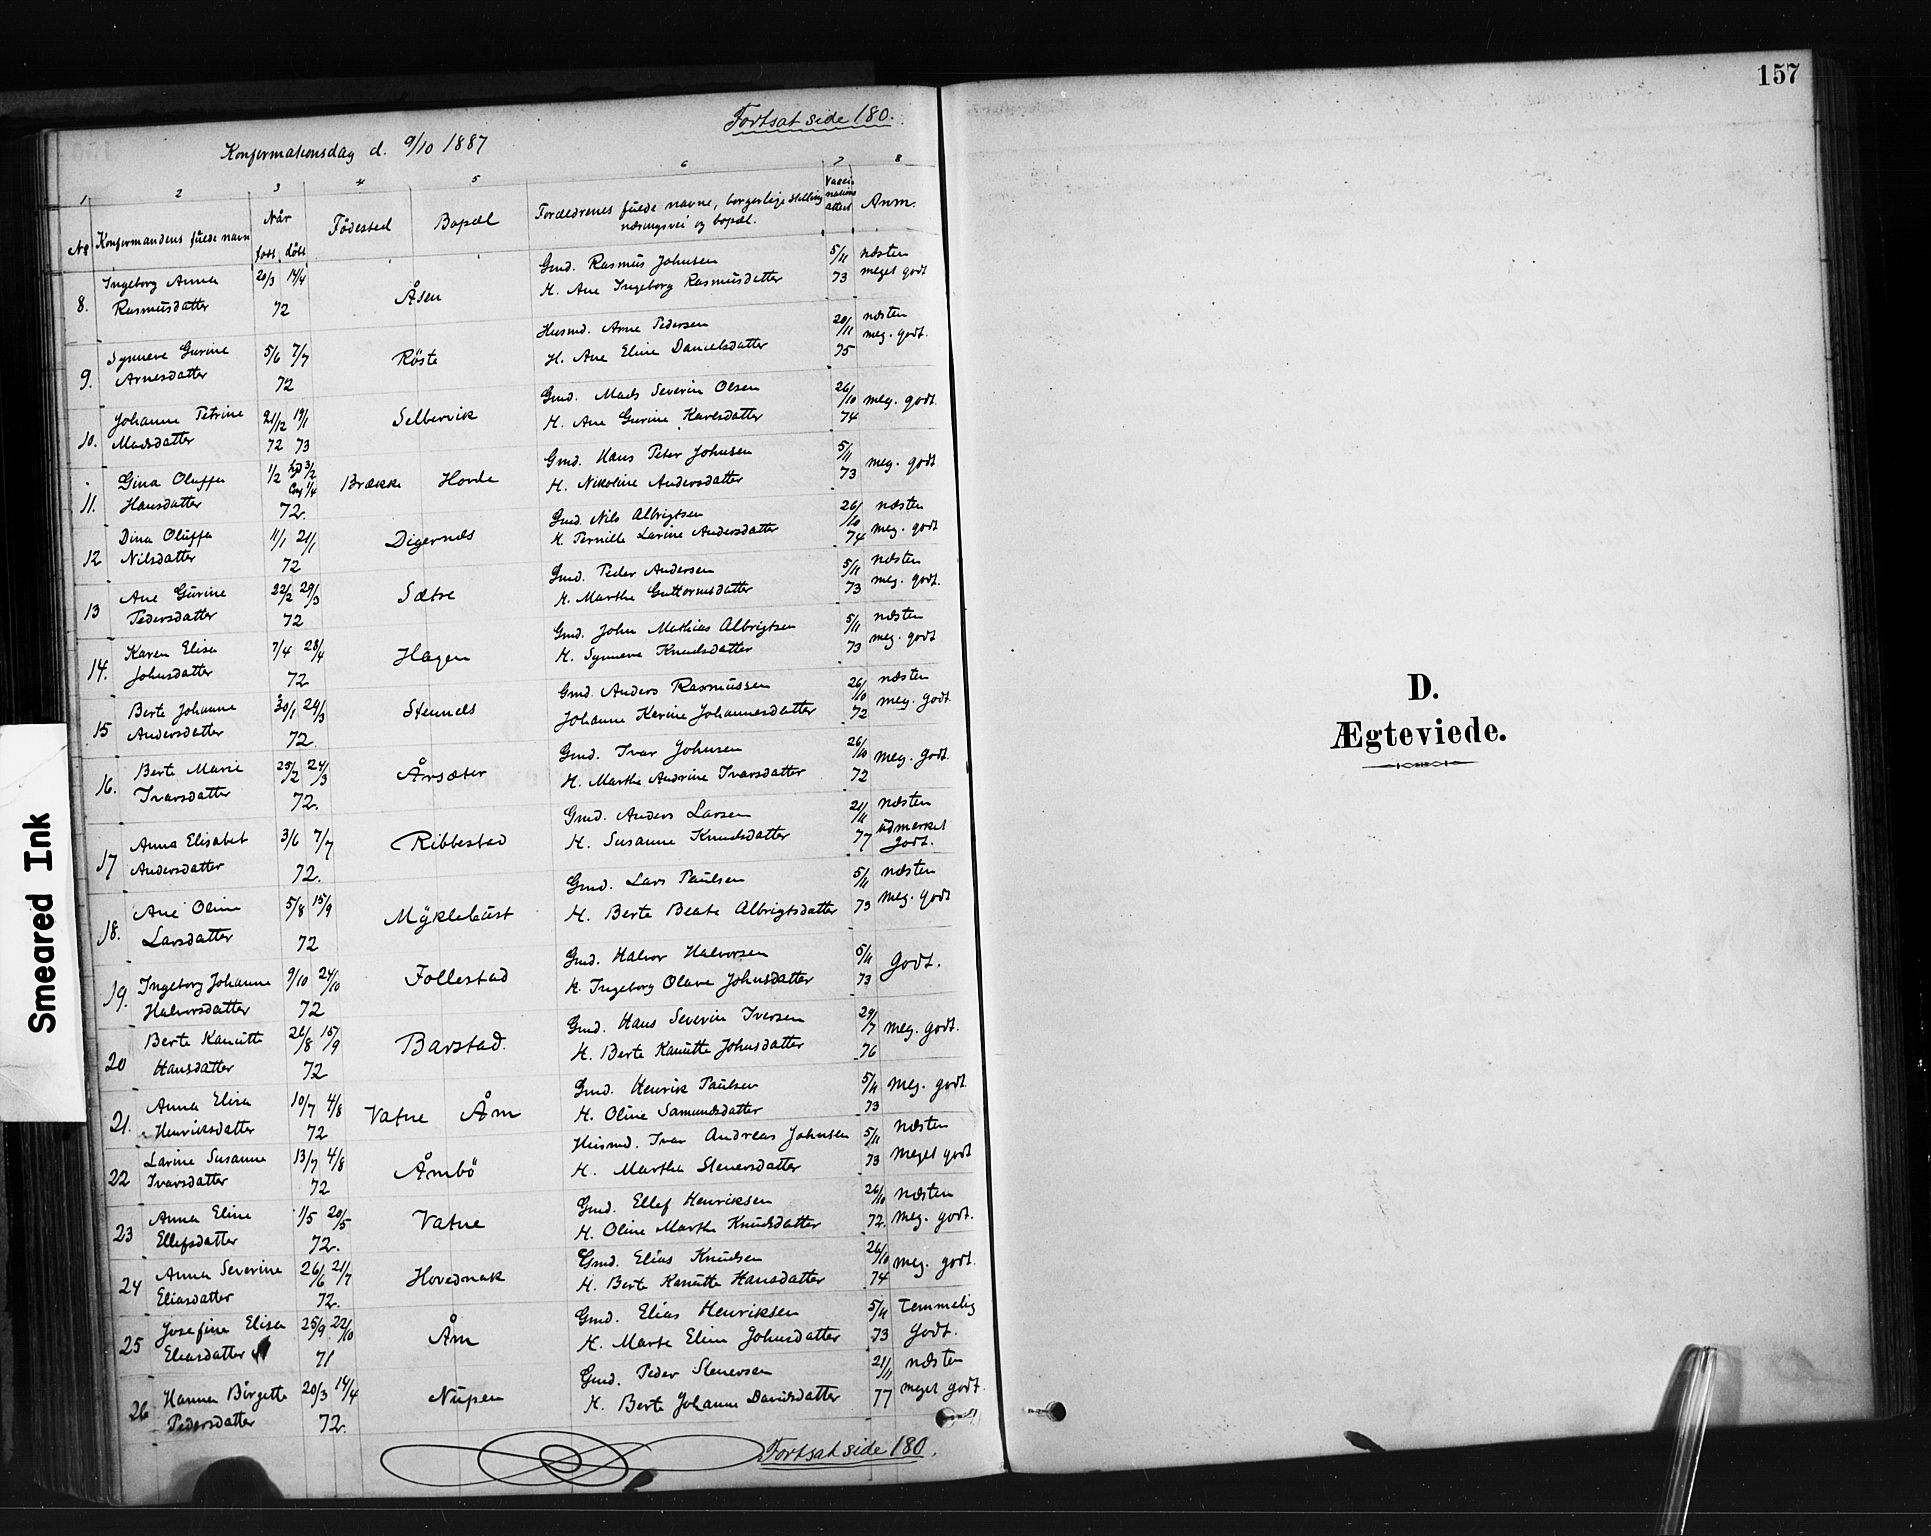 157
Fortsat side 180.
Konfirmationsdag d. 9/10 1887
1 2 3 4 5 6 7 8
No Konfirmandens fulde navn Når født, døbt Fødested Bopæl Forældrenes fulde navne, borgerlige stilling næringsvei og bopæl. Vaccinations attest Anm.
8. Ingeborg Anna 20/3 14/4 Åsen Gmd. Rasmus Johnsen 5/11 næsten
Rasmusdatter 72 H. Ane Ingeborg Rasmusdatter 73 meget godt
9. Synneve Gurine 5/6 7/7 Röste Husmd. Arne Pedersen 20/11 næsten
Arnesdatter 72 H. Ane Eline Danielsdatter 75 meg. godt.
10. Johanne Petrine 21/12 19/1 Selbervik Gmd. Mads Severin Olsen 26/10 meg. godt.
Madsdatter 72 73 H. Ane Gurine Karlsdatter 74
11. Gina Oluffa 1/2 3/2 1/4 Brække Hovde Gmd. Hans Peter Johnsen 5/11 meg. godt
Hansdatter 72. H. Nikoline Andersdatter 73
12 Dina Oluffa 11/1 21/1 Digernæs Gmd. Nils Albrigtsen 26/10 næsten
Nilsdatter 72 H. Pernille Larine Andersdatter 74 meg. godt
13 Ane Gurine 22/2 29/3 Sætre Gmd. Peder Andersen 5/11 næsten
Pedersdatter 72 H. Marthe Guttormsdatter 73 meg. godt.
14. Karen Elisa 7/4 28/4 Hagen Gmd. John Mathias Albrigtsen 5/11 næsten
Johnsdatter 72 H. Synneve Knudsdatter 73 meg. godt
15 Berte Johanne 30/1 24/3 Stennes Gmd Anders Rasmussen 26/10 næsten
Andersdatter 72. Johanne Karine Johannesdatter 72 meg. godt.
16. Berte Marie 25/2 24/3 Årsæter Gmd. Ivar Johnsen 26/10 meg. godt.
Ivarsdatter 72. H. Marthe Andrine Ivarsdatter 72
17 Anna Elisabet 3/6 7/7 Ribbestad Gmd. Anders Larsen 21/11 næsten
Andersdatter 72. H. Susanne Knudsdatter 77 udmærket godt.
18. Ane Oline 5/8 15/9 Myklebust Gmd. Lars Paulsen 5/11 næsten
Larsdatter 72 H. Berte Beate Albrigtsdatter 73 meg. godt
19. Ingeborg Johanne 9/10 24/10 Follestad Gmd. Halvor Halvorsen 5/11 godt.
Halvorsdatter 72 H. Ingeborg Olava Johnsdatter 73
20 Berte Kanutte 26/8 15/9 Barstad. Gmd. Hans Severin Iversen 29/7 meg. godt.
Hansdatter 72 H. Berte Kanutte Johnsdatter 76
21. Anna Elisa 10/7 4/8 Vatne Åm Gmd. Henrik Paulsen 5/11 meg. godt.
Henriksdatter 72 H. Oline Samundsdatter 73
22 Larine Susanne 13/7 4/8 Åmbö Husmd. Ivar Andreas Johnsen 5/11 næsten
Ivarsdatter 72 H. Marthe Stenersdatter 73 meget godt
23 Anna Eline 1/5 20/5 Vatne Gmd. Ellef Henriksen 26/10 næsten
Ellefsdatter 72. H. Oline Marthe Knudsdatter 72. meg. godt.
24 Anna Severine 26/6 21/7 Hovednak Gmd. Elias Knudsen 26/10 meg. godt.
Eliasdatter 72. H. Berte Kanutte Hansdatter 74
25 Josefine Elisa 25/9 22/10 Åm Gmd. Elias Henriksen 5/11 temmelig
Eliasdatter 71 H. Marte Eline Johnsdatter 73 godt.
26 Hanna Birgette 20/3 14/4 Nupen Gmd. Peder Stenersen 21/11 næsten
Pedersdatter 72. H. Berte Johanne Davidsdatter 77 meget godt.
Fortsat side 180.
Smeared Ink
D.
Ægteviede.